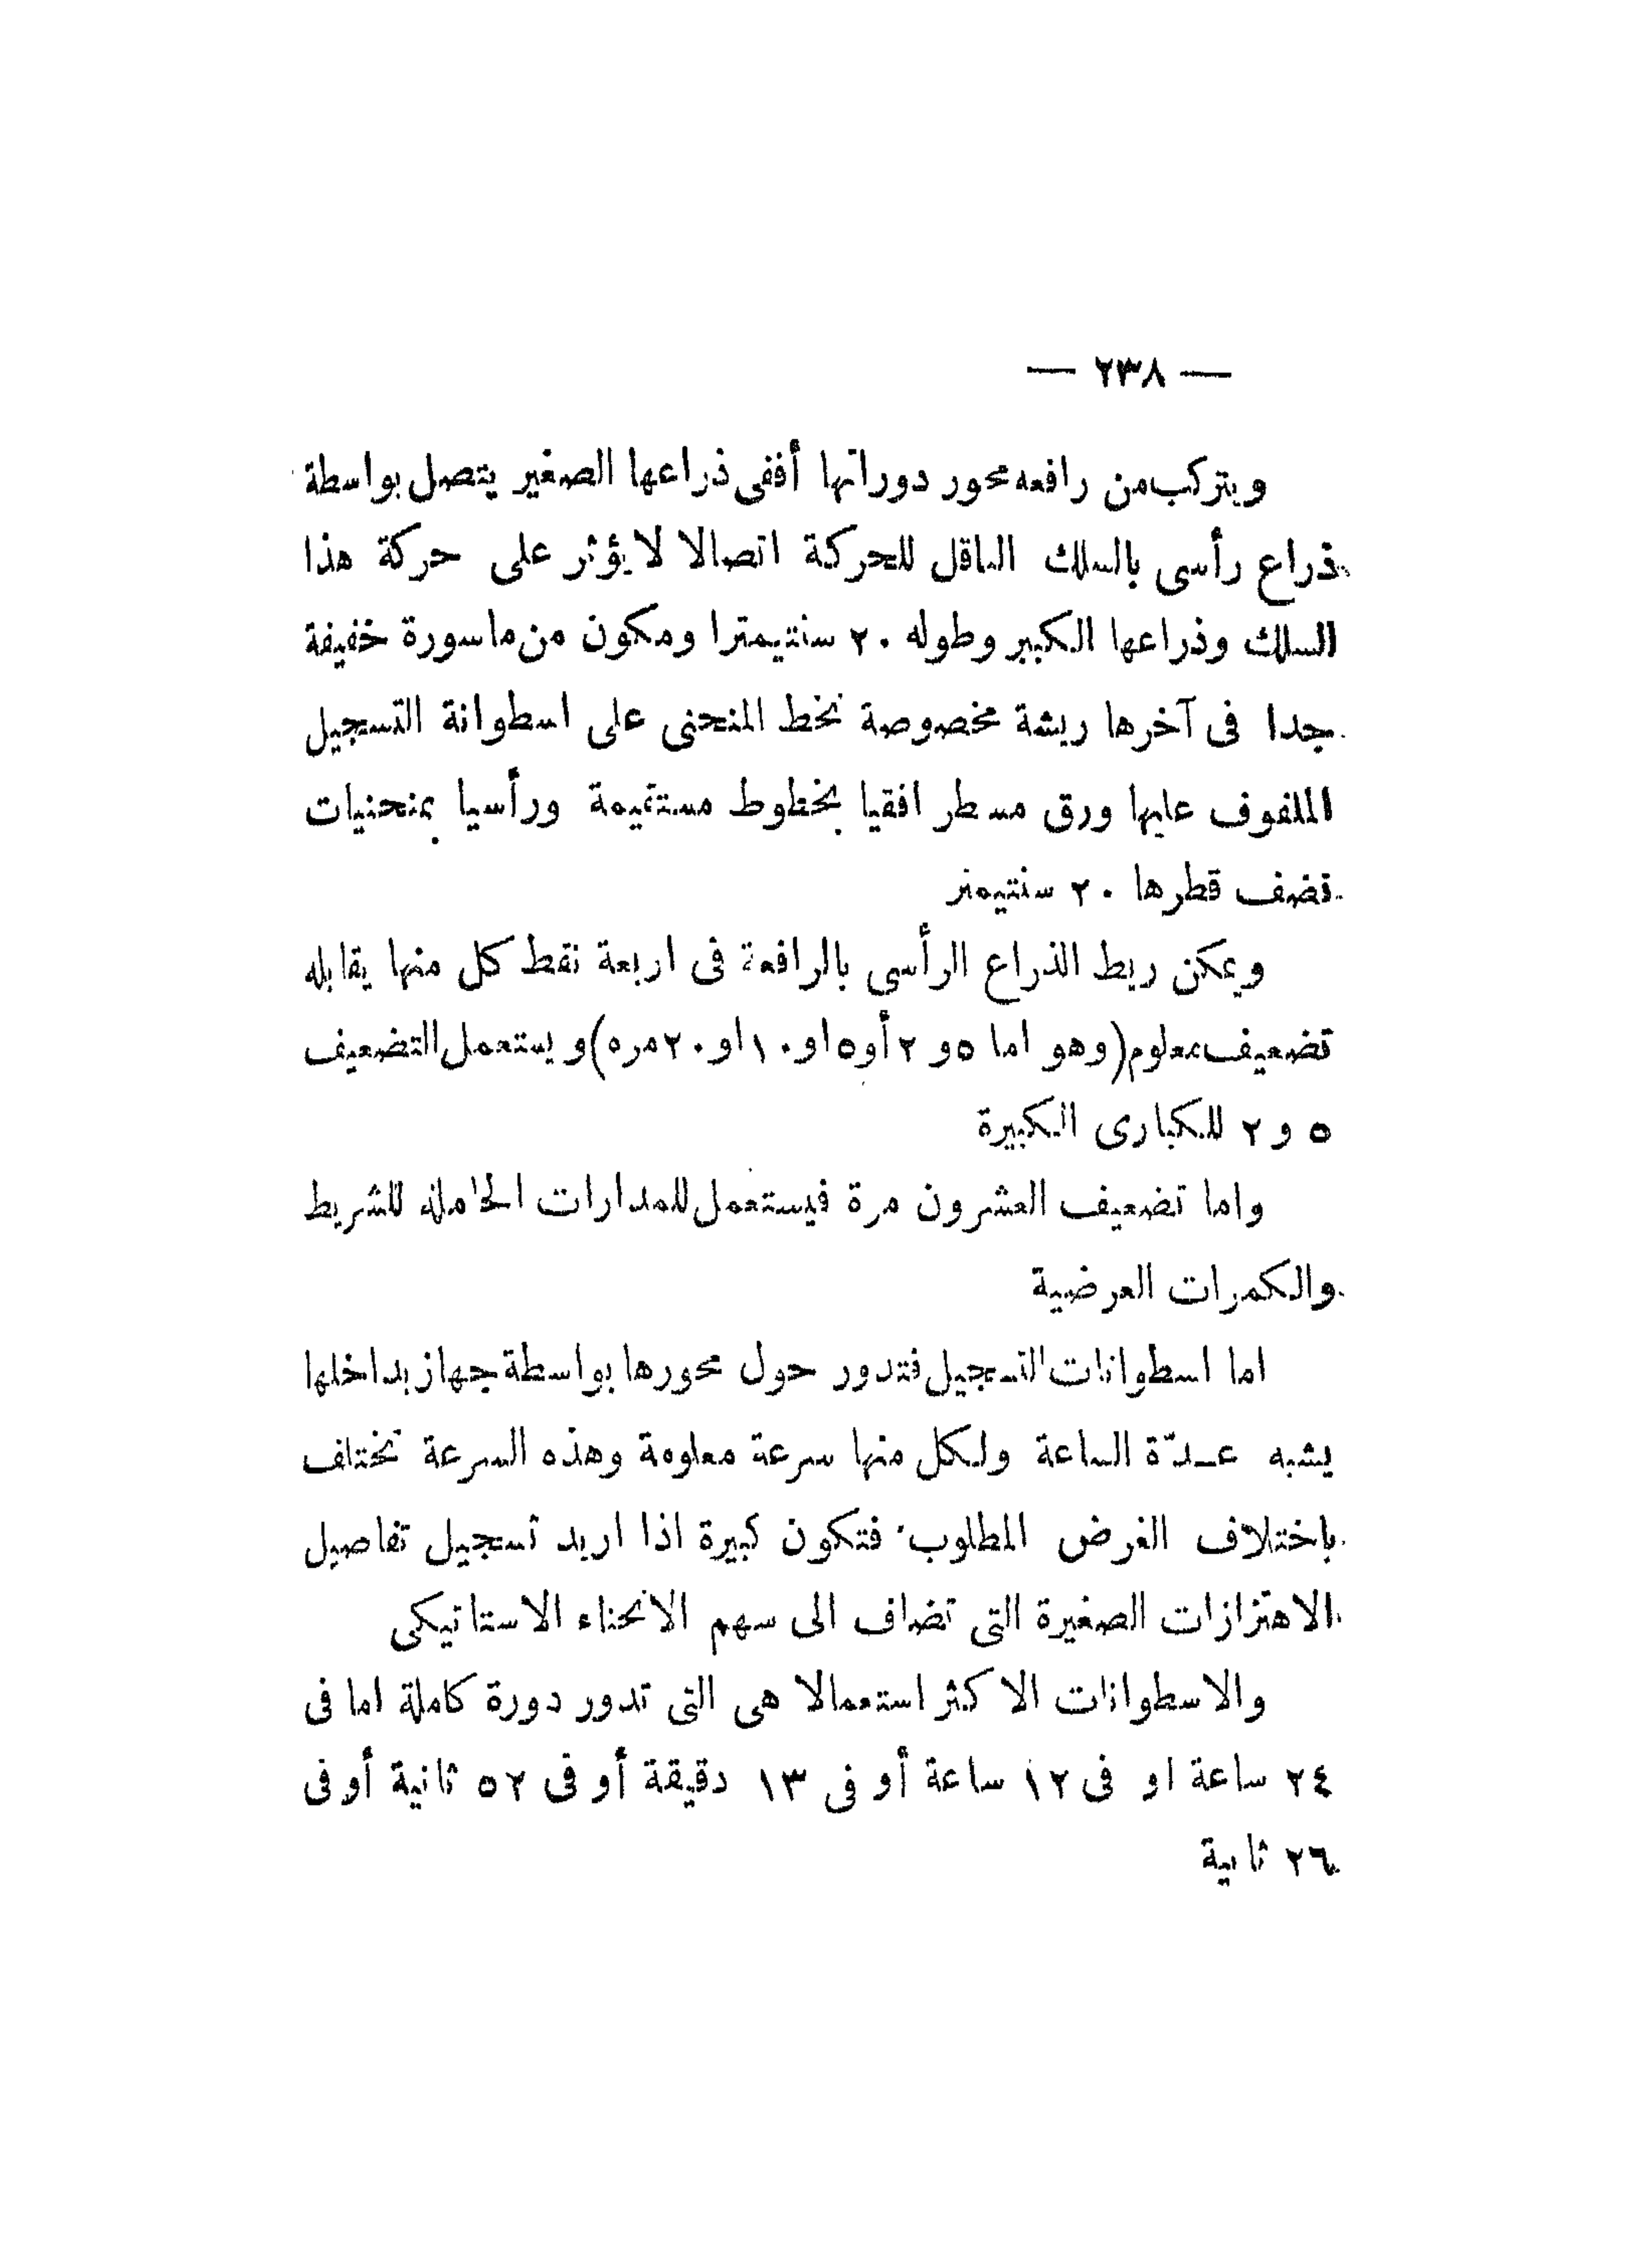 — ٢٣٨ —
ويتركب من رافعه محور دورانها أفقى ذراعها الصغير يتصل بواسطة
ذراع رأسى بالسلك الناقل للحركة اتصالا لا يؤثر على حركة هذا
السلك وذراعها الكبير وطوله ٢٠ سنتيمترا ومكون من ماسورة خفيفة
جدا فى آخرها ريشة مخصوصة تخط المنحنى على اسطوانة التسجيل
الملفوف عليها ورق مسطر افقيا بخطوط مستقيمة ورأسيا بمنحنيات
نصف قطرها ٢٠ سنتيمتر
ويمكن ربط الذراع الرأسى بالرافعة فى اربعة نقط كل منها يقابله
تضعيف معلوم (وهو اما ٥ و ٢ أو ٥ او ١٠ او ٢٠ مره) ويستعمل التضعيف
٥ و ٢ للكبارى الكبيرة
واما تضعيف العشرون مرة فيستعمل للمدارات الحاملة للشريط
والكمرات العرضية
اما اسطوانات التسجيل فتدور حول محورها بواسطة جهاز بداخلها
يشبه عـدّة الساعة ولكل منها سرعة معلومة وهذه السرعة تختلف
باختلاف الغرض المطلوب فتكون كبيرة اذا اريد تسجيل تفاصيل
الاهتزازات الصغيرة التى تضاف الى سهم الانحناء الاستاتيكى
والاسطوانات الاكثر استعمالا هى التى تدور دورة كاملة اما فى
٢٤ ساعة او فى ١٢ ساعة أو فى ١٣ دقيقة أو فى ٥٢ ثانية أو فى
٢٦ ثانية